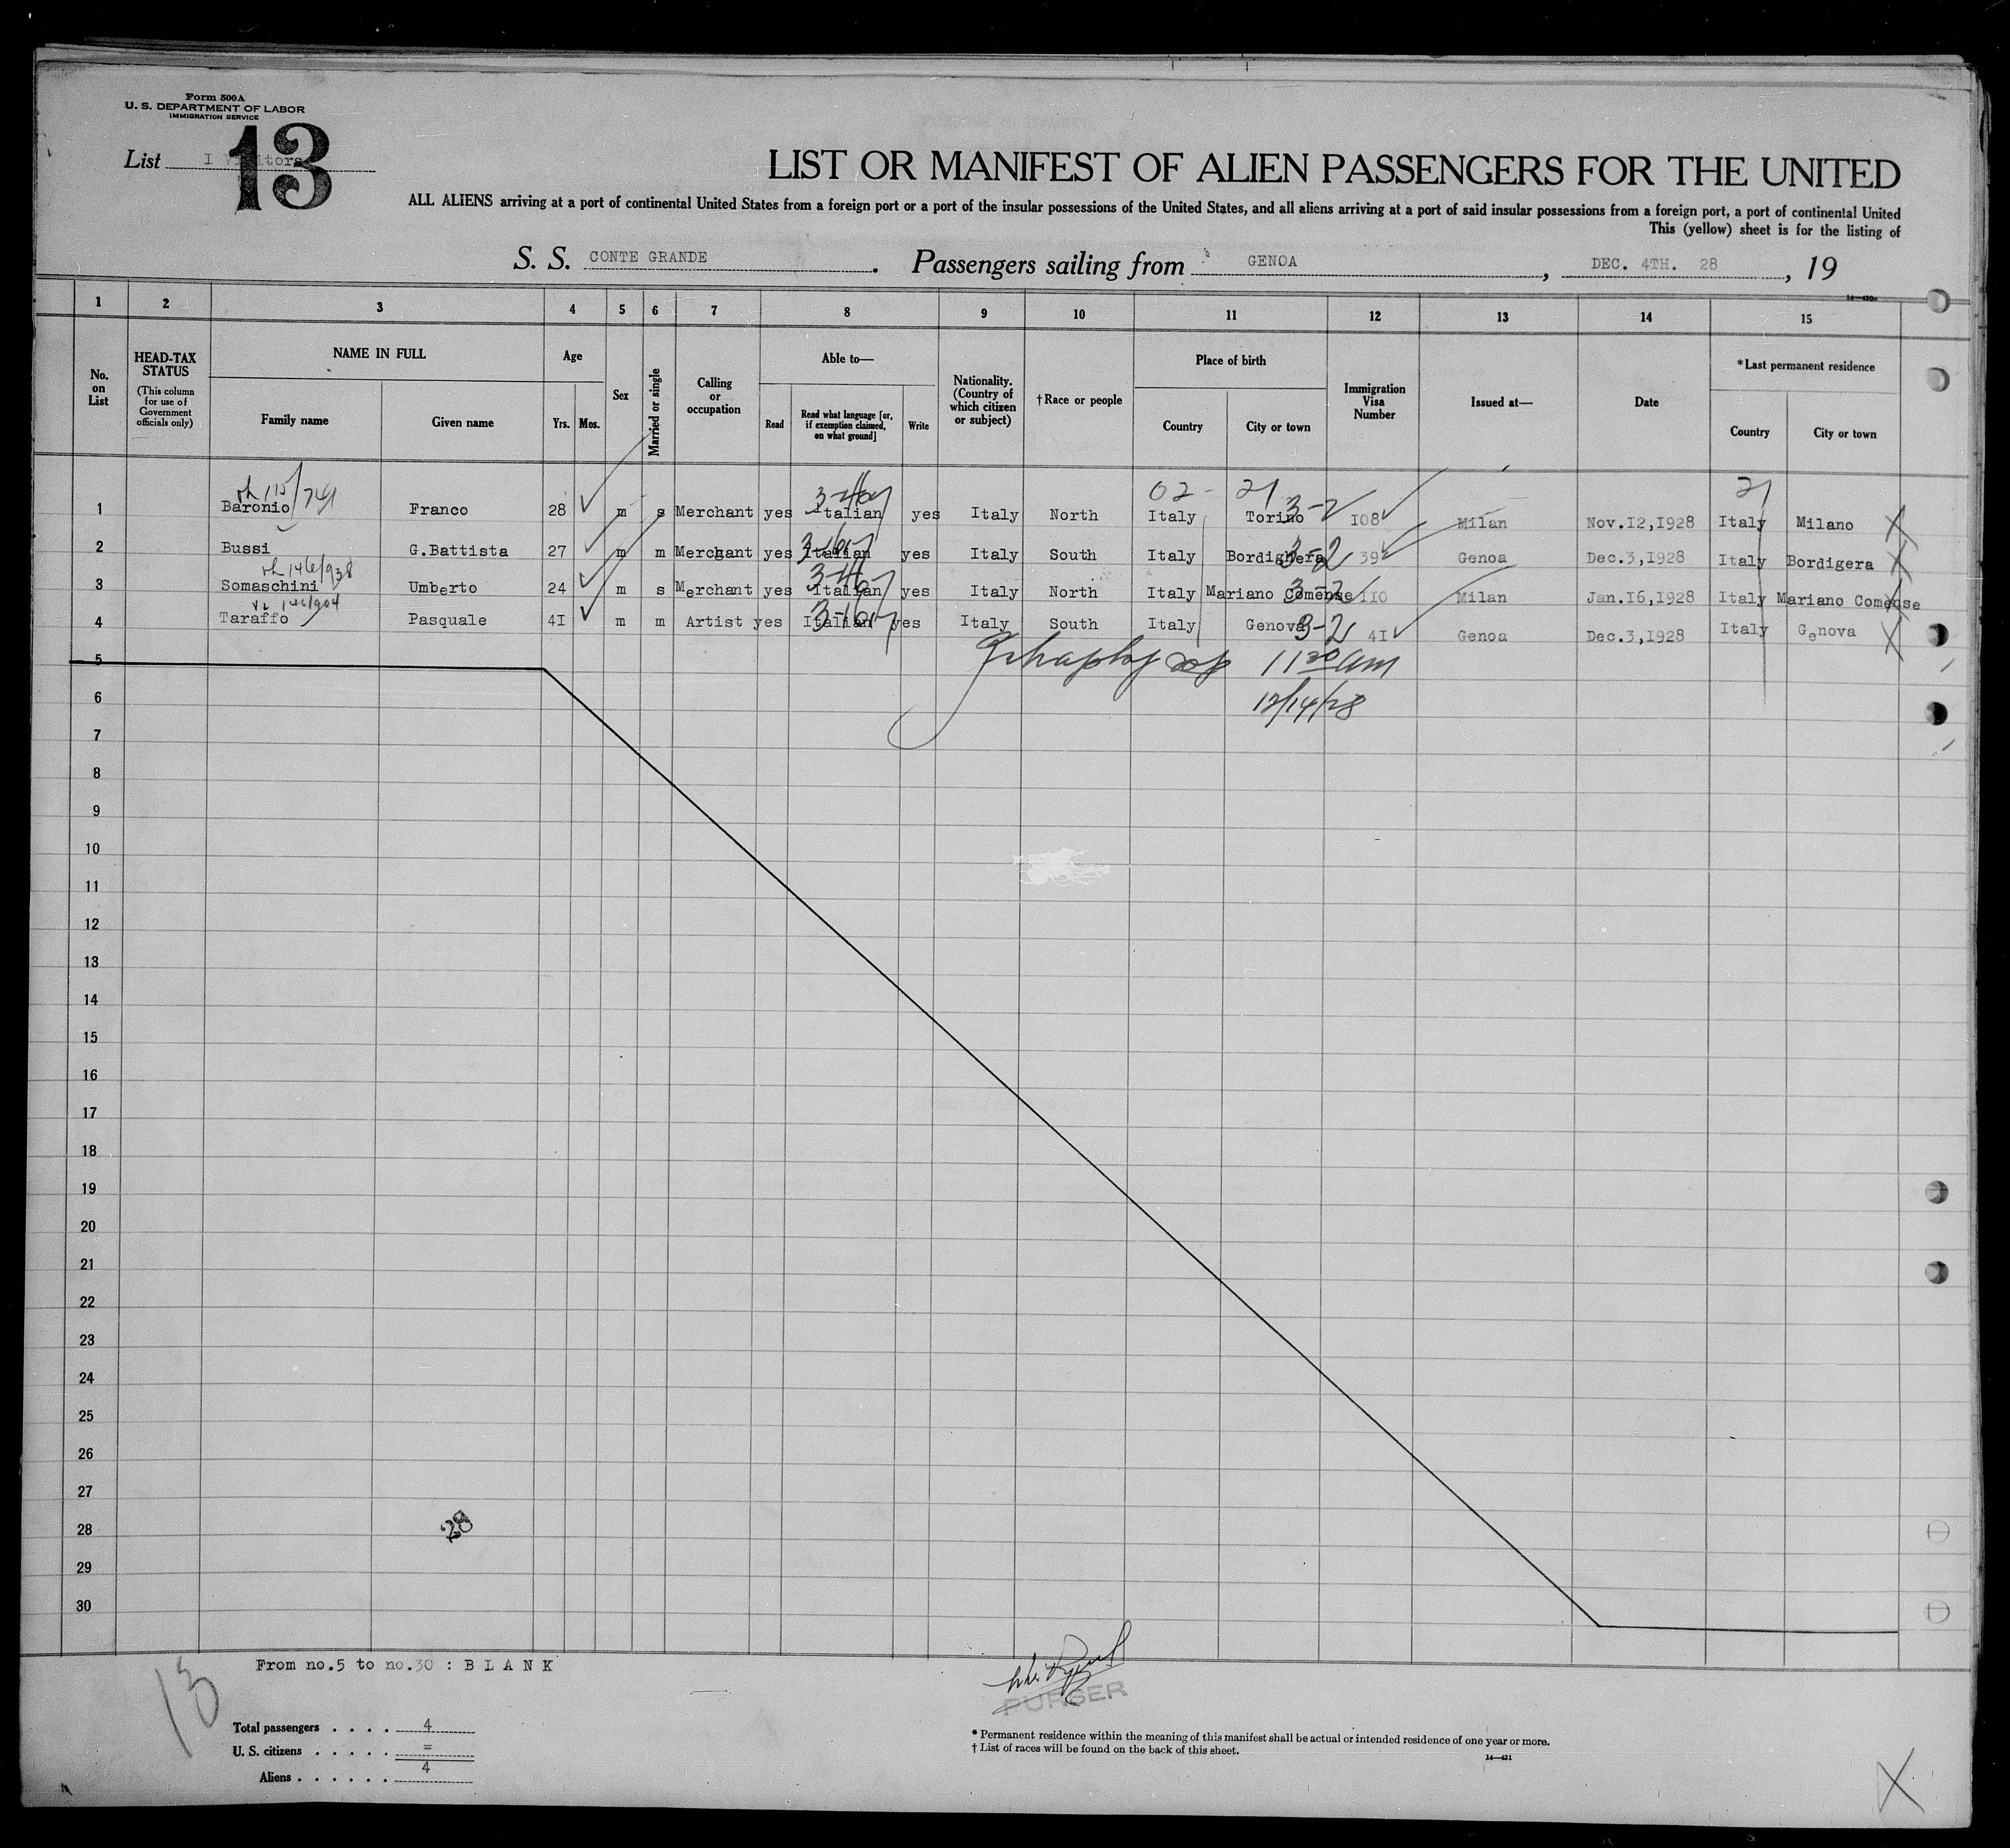 Form 500A
U. S. DEPARTMENT OF LABOR
IMMIGRATION SERVICE
List I Visitors
13
LIST OR MANIFEST OF ALIEN PASSENGERS FOR THE UNITED
ALL ALIENS arriving at a port of continental United States from a foreign port or a port of the insular possessions of the United States, and all aliens arriving at a port of said insular possessions from a foreign port, a port of continental United
This (yellow) sheet is for the listing of
S. S. CONTE GRANDE. Passengers sailing from GENOA, DEC. 4TH. 28, 19
1 2 3 4 5 6 7 8 9 10 11 12 13 14 15
No. on List
HEAD-TAX STATUS
(This column for use of Government officials only)
NAME IN FULL
Family name
Given name
Age
Yrs. Mos.
Sex
Married or single
Calling or occupation
Able to—
Read
Read what language [or, if exemption claimed, on what ground]
Write
Nationality. (Country of which citizen or subject)
†Race or people
Place of birth
Country
City or town
Immigration Visa Number
Issued at—
Date
*Last permanent residence
Country
City or town
02- 21 21
1 Baronio Franco 28 m s Merchant yes Italian yes Italy North Italy Torino 3-2 108 Milan Nov.12,1928 Italy Milano X
2 Bussi G.Battista 27 m m Merchant yes Italian yes Italy South Italy Bordighera 3-2 39 Genoa Dec.3,1928 Italy Bordigera X
146/938
3 Somaschini Umberto 24 m s Merchant yes Italian yes Italy North Italy Mariano Comense 3-2 110 Milan Jan.16,1928 Italy Mariano Comense X
146/904
4 Taraffo Pasquale 41 m m Artist yes Italian yes Italy South Italy Genova 3-2 41 Genoa Dec.3,1928 Italy Genova X
5
11 30 am
6
12/14/28
7
8
9
10
11
12
13
14
15
16
17
18
19
20
21
22
23
24
25
26
27
28
28
29
30
From no.5 to no.30 : B L A N K
13
PURSER
Total passengers . . . . 4
U. S. citizens . . . . . =
Aliens . . . . . . 4
* Permanent residence within the meaning of this manifest shall be actual or intended residence of one year or more.
† List of races will be found on the back of this sheet.
14—431
X